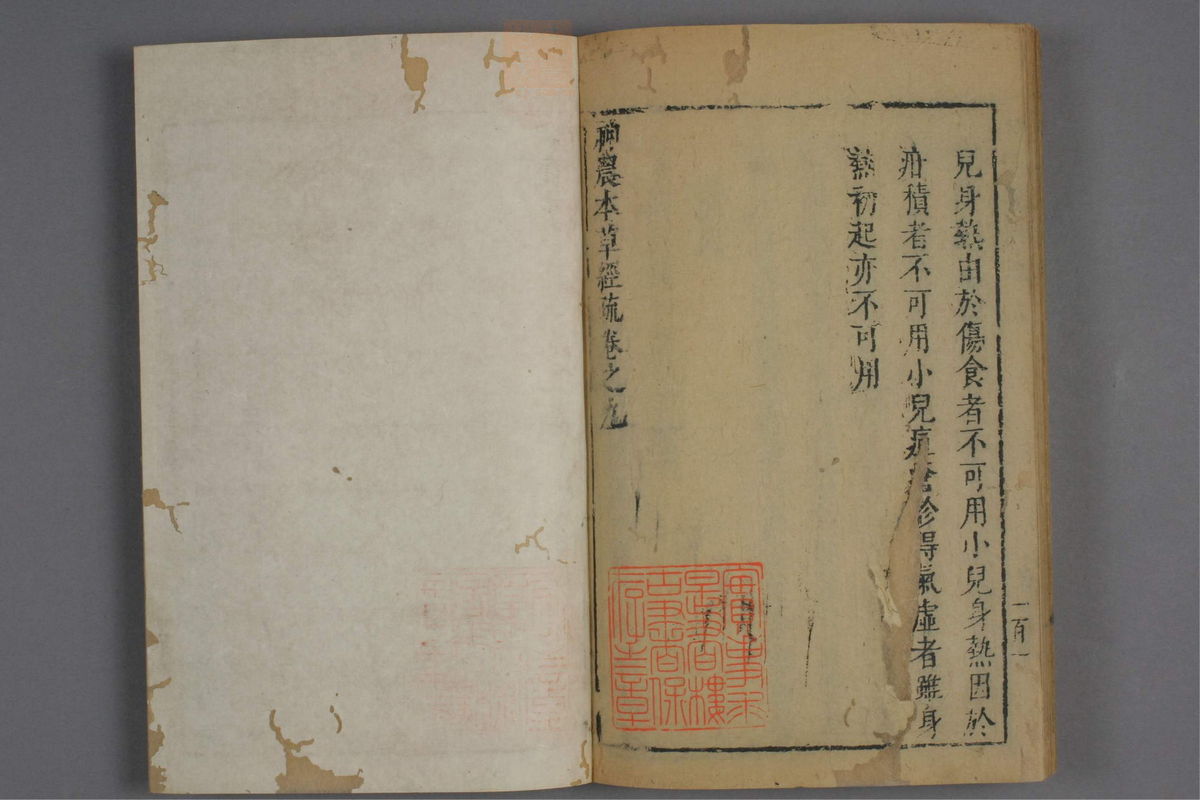 兒身熱由於傷食者不可用小兒身熱因於
疳積者不可用小兒瘧診得氣虛者雖身
熱初起亦不可用
神農本草經疏卷之九
一百一